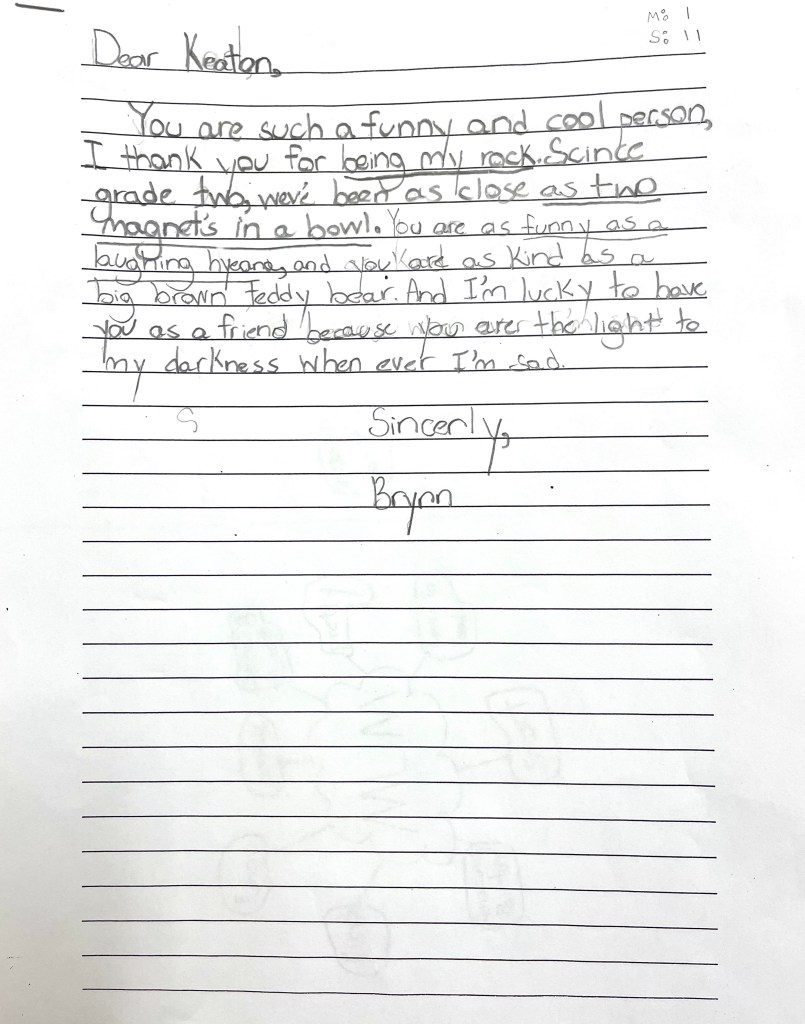 M: 1
S: 11
Dear Keaton,
You are such a funny and cool person,
I thank you for being my rock. Scince
grade two, wev'e been as close as two
magnet's in a bowl. You are as funny as a
laughing hyeana, and you are as kind as a
big brown teddy bear. And I'm lucky to have
you as a friend because you are the light to
my darkness when ever I'm sad.
S
Sincerly,
Brynn